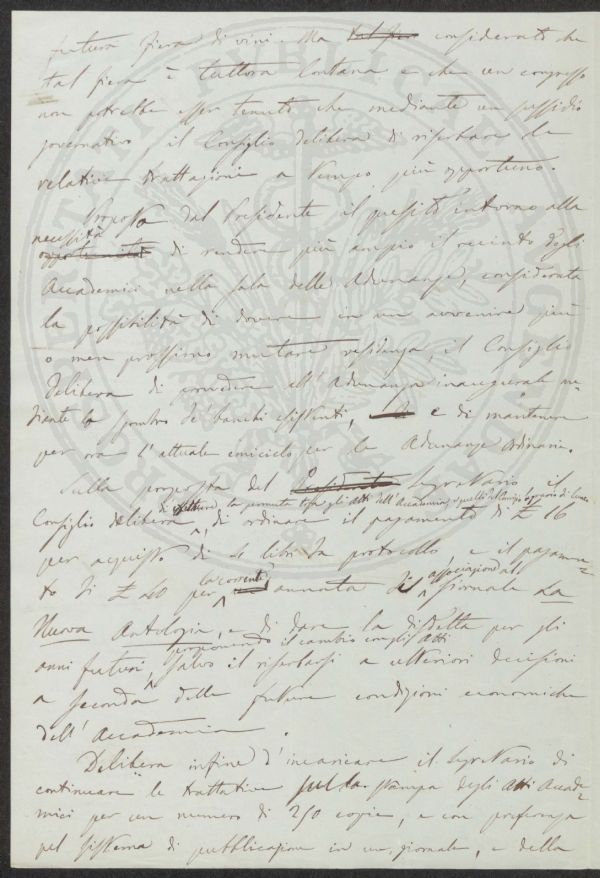 futura fiera di vini. Ma tal fier considerato che
tal fiera è tuttora lontana e che un congresso
non potrebbe esser tenuto che mediante un sussidio
governativo, il Consiglio delibera di riserbare le
relative trattazioni a tempo più opportuno.
Proposto dal Presidente il quesito intorno alla
necessità
opportunità di rendere più ampio il recinto degli
Accademici nella sala delle Adunanze, considerata
la possibilità di dovere in un avvenire più
o men prossimo mutare residenza, il Consiglio
delibera di provvedere all'Adunanza inaugurale me-
diante lo sgombro dei banchi esistenti, e di mantenere
per ora l'attuale emiciclo per le Adunanze ordinarie.
Sulla proposta del Presidente Segretario il
di effettuare la permuta tra gli Atti dell'Accademia e quelli
Consiglio delibera, di ordinare il pagamento di £ 16
per acquisto di 4 libri da protocollo, e il pagamen-
la corrente
associazione al
to di £ 40 per annata di giornale La
Nuova Antologia, e di dare la disdetta per gli
proponendo il cambio con gli Atti
anni futuri, salvo il riserbarsi a ulteriori decisioni
a seconda delle future condizioni economiche
dell'Accademia.
Delibera infine d'incaricare il Segretario di
continuare le trattative sulla stampa degli Atti Accade-
mici per un numero di 250 copie, e con preferenza
pel sistema di pubblicazione in un giornale, e della